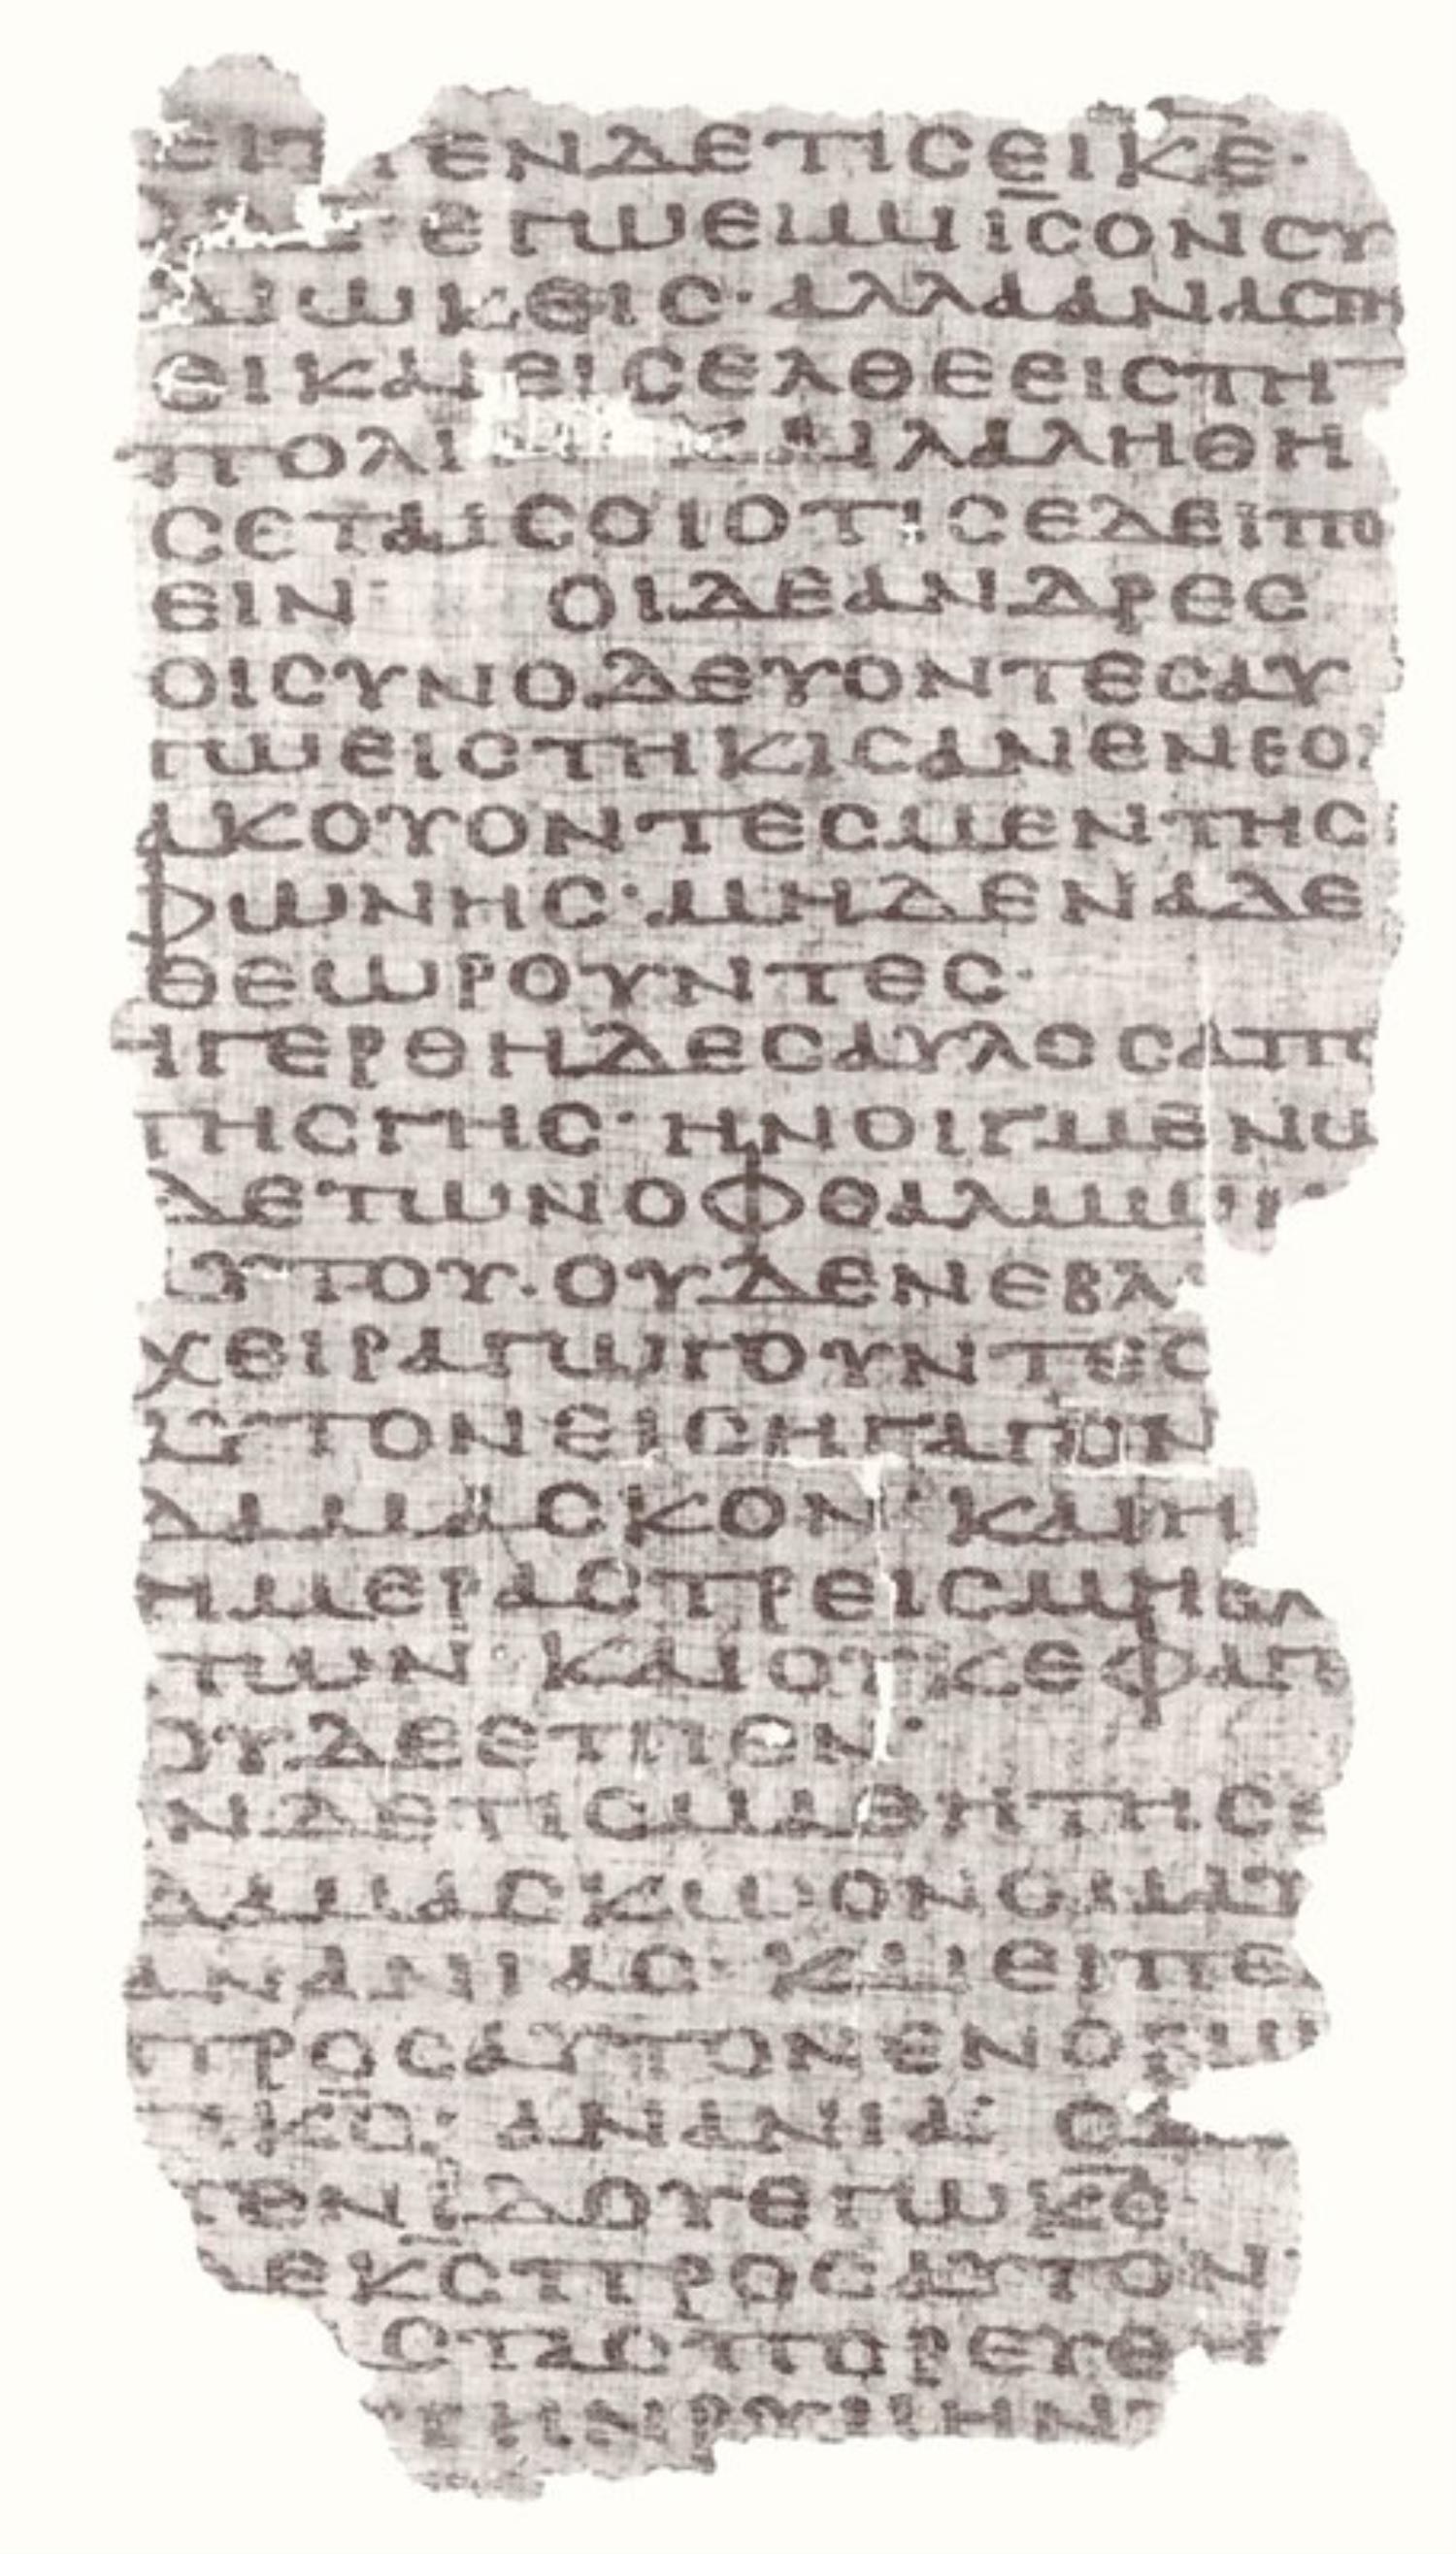 ΕΙΠΕΝΔΕΤΙCΕΙΚΕ·
ΕΓΩΕΙΜΙΙCΟΝCΥ
ΔΙΩΚΕΙC·ΑΛΛΑΑΝΑCΤΗ
ΘΕΙΚΑΙΕΙCΕΛΘΕΕΙCΤΗ
ΠΟΛΙ ΚΑΙΛΑΛΗΘΗ
CΕΤΑΙCΟΙΟΤΙCΕΔΕΙΠΟ
ΕΙΝ· ΟΙΔΕΑΝΔΡΕC
ΟΙCΥΝΟΔΕΥΟΝΤΕCΑΥ
ΓΩΕΙCΤΗΚΙCΑΝΕΝΕΟΙ
ΑΚΟΥΟΝΤΕCΜΕΝΤΗC
ΦΩΝΗC·ΜΗΔΕΝΑΔΕ
ΘΕΩΡΟΥΝΤΕC·
ΗΓΕΡΘΗΔΕCΑΥΛΟCΑΠ
ΤΗCΓΗC·ΗΝΟΙΓΜΕΝΩ
ΔΕΤΩΝΟΦΘΑΛΜΩΝ
ΑΥΤΟΥ·ΟΥΔΕΝΕΒΛ
ΧΕΙΡΑΓΩΓΟΥΝΤΕC
ΑΥΤΟΝΕΙCΗΓΑΓΟΝ
ΔΑΜΑCΚΟΝ·ΚΑΙΗ
ΗΜΕΡΑCΤΡΕΙCΜΗΒΛ
ΠΩΝ·ΚΑΙΟΥΚΕΦΑΓΕ
ΟΥΔΕΕΠΙΕΝ·
ΗΝΔΕΤΙCΜΑΘΗΤΗCΕ
ΔΑΜΑCΚΩΟΝΟΜΑΤΙ
ΑΝΑΝΙΑC·ΚΑΙΕΙΠΕ
ΠΡΟCΑΥΤΟΝΕΝΟΡΑΜ
ΤΙΚC· ΑΝΑΝΙΑ· ΟΔ
ΠΕΝΙΔΟΥΕΓΩΚΕ
ΔΕΚCΠΡΟCΑΥΤΟΝ
CΤΑCΠΟΡΕΥΘΗ
ΤΗΝΡΥΜΗΝ